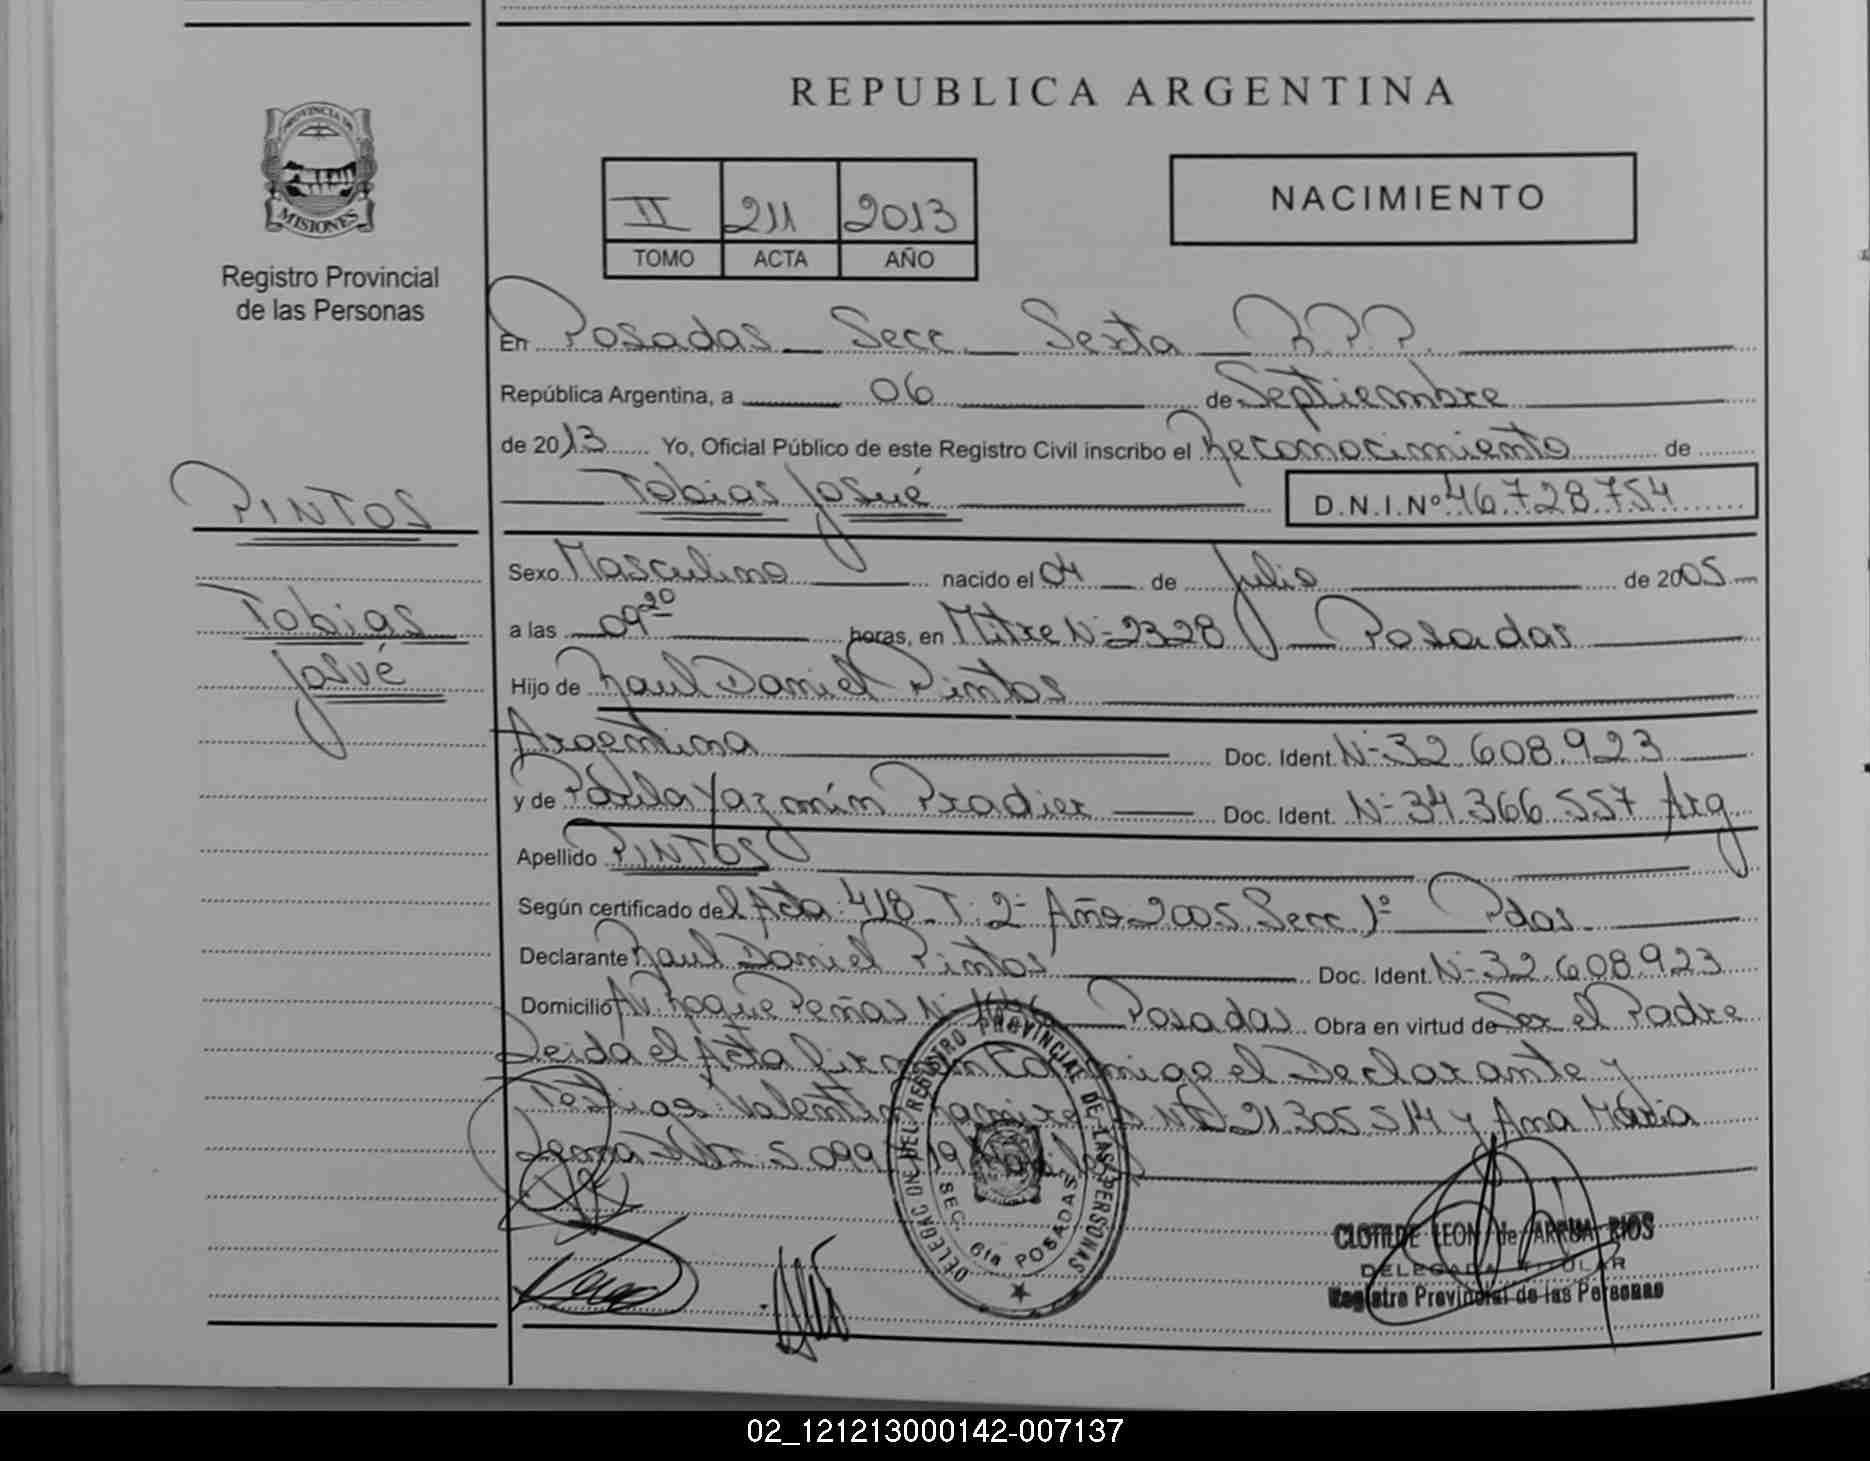 REPUBLICA ARGENTINA
PROVINCIA DE
MISIONES
Registro Provincial
de las Personas
II 211 2013
TOMO ACTA AÑO
NACIMIENTO
En Posadas Secc. Sexta R.P.P.
República Argentina, a 06 de Septiembre
de 2013 Yo, Oficial Público de este Registro Civil inscribo el Reconocimiento de
Tobias Josué D.N.I.Nº 46.728.754
PINTOS
Tobias
Josué
Sexo Masculino nacido el 04 de Julio de 2005
a las 09 20 horas, en Mitre Nº 2328 Posadas
Hijo de Raul Daniel Pintos
Argentina Doc. Ident. Nº 32.608.923
y de Paula Yazmín Pradier Doc. Ident. Nº 34.366.557 Arg
Apellido PINTOS
Según certificado del Acta 418 T. 2º Año 2005 Secc. 1º Pdas
Declarante Raul Daniel Pintos Doc. Ident. Nº 32.608.923
Domicilio Av. Roque Peñas Nº Posadas Obra en virtud de Ser el Padre
Leida el Acta firman conmigo el Declarante y
Testigos Valentin Ramirez 21.305.514 y Ana Maria
DELEGAC ON DEL REGISTRO PROVINCIAL DE LAS PERSONAS
SEC. 6ta POSADAS
CLOTILDE LEON de ARRUA RIOS
DELEGADA TITULAR
Registro Provincial de las Personas
02_121213000142-007137